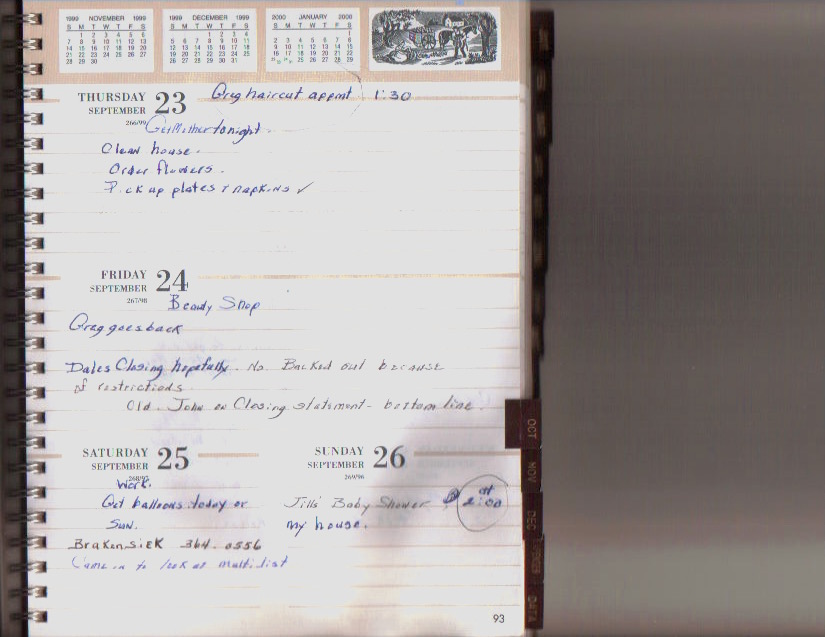 1999 NOVEMBER 1999
S M T W T F S
1 2 3 4 5 6
7 8 9 10 11 12 13
14 15 16 17 18 19 20
21 22 23 24 25 26 27
28 29 30
1999 DECEMBER 1999
S M T W T F S
1 2 3 4
5 6 7 8 9 10 11
12 13 14 15 16 17 18
19 20 21 22 23 24 25
26 27 28 29 30 31
2000 JANUARY 2000
S M T W T F S
1
2 3 4 5 6 7 8
9 10 11 12 13 14 15
16 17 18 19 20 21 22
25 26 27 28 29
THURSDAY 23 Greg haircut appmt 1:30
SEPTEMBER
266/99
Get Mother tonight.
Clean house.
Order flowers.
Pick up plates & napkins ✓
FRIDAY 24
SEPTEMBER
267/98
Beauty Shop
Greg goes back
Dales Closing hopefully. No. Backed out because
of restrictions
Old. John on Closing statement - bottom line.
SATURDAY 25
SEPTEMBER
268/97
Work.
Get balloons today or
Sun.
Brakensiek 364-0556
Came in to look at multilist
SUNDAY 26
SEPTEMBER
269/96
Jill's Baby Shower @ at 2:00
my house.
OCT
NOV
DEC
DATA
93